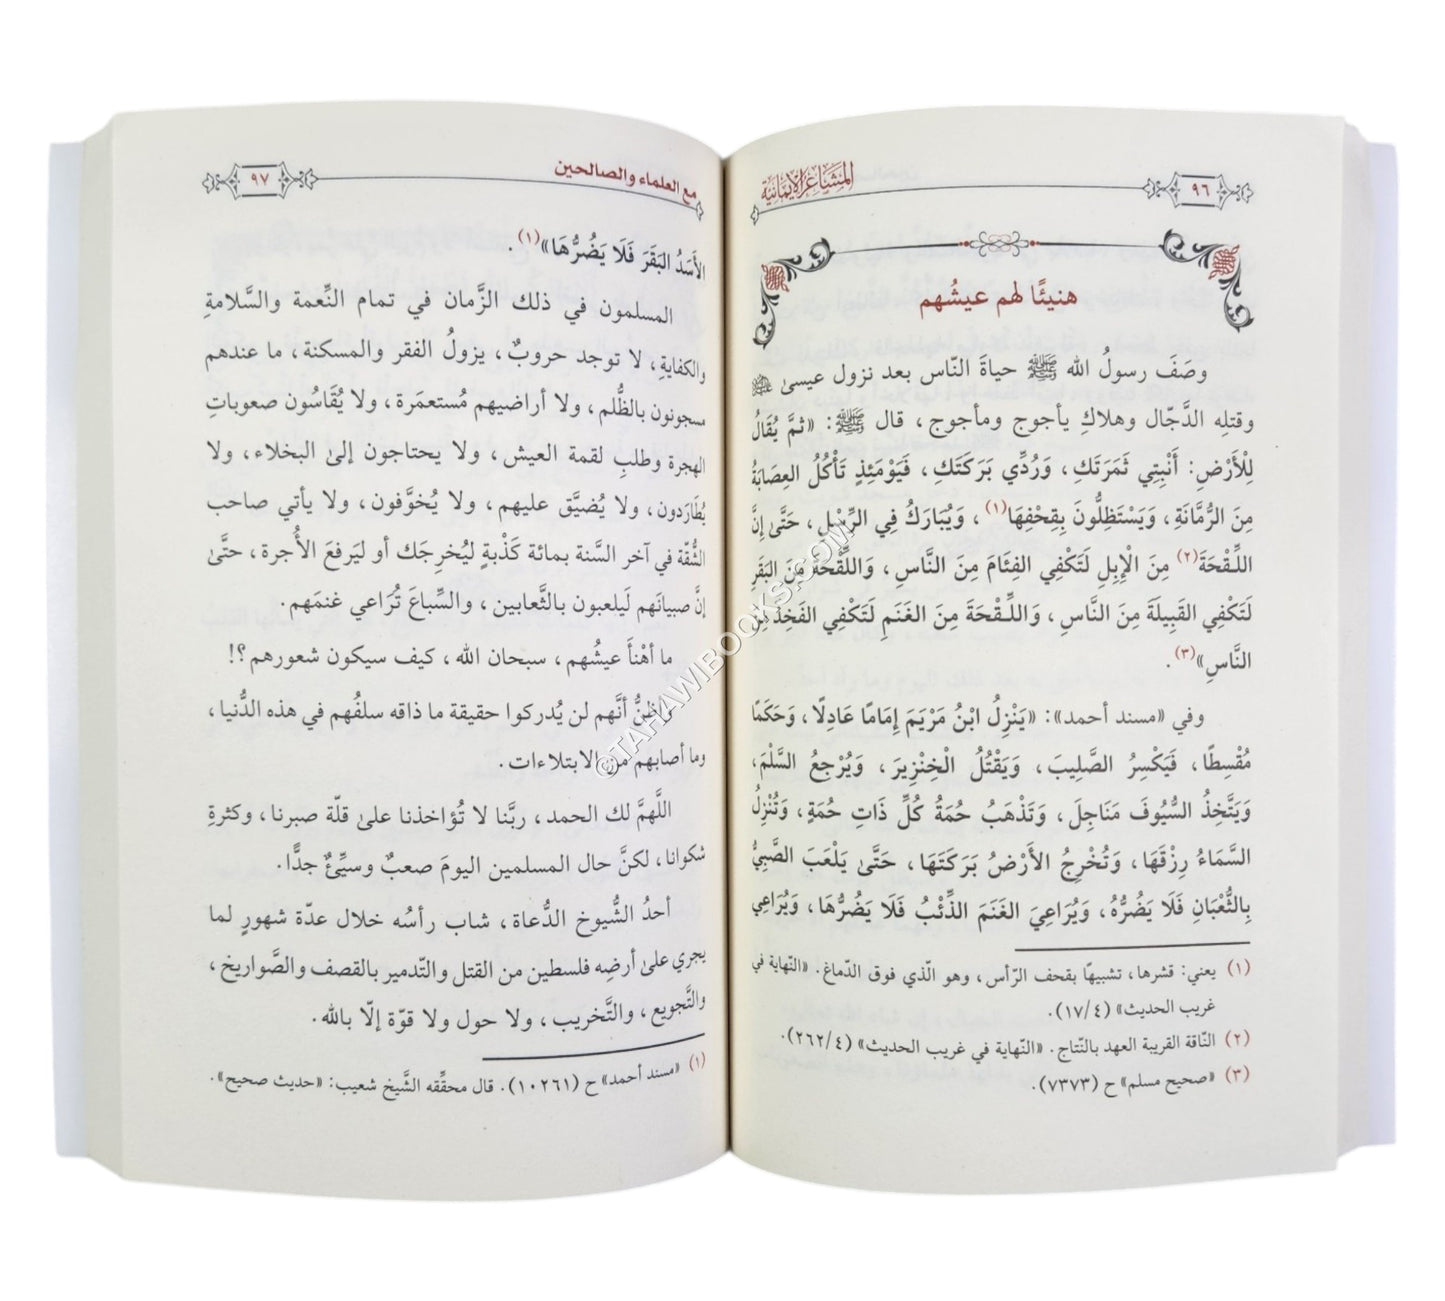 ٩٦
المشاعر الإيمانية
هنيئًا لهم عيشُهم
وصَفَ رسولُ الله ﷺ حياةَ النّاس بعد نزول عيسىٰ
وقتلِه الدَّجّال وهلاكِ يأجوج ومأجوج، قال ﷺ: «ثمَّ يُقَالُ
لِلْأَرْضِ: أَنْبِتِي ثَمَرَتَكِ، وَرُدِّي بَرَكَتَكِ، فَيَوْمَئِذٍ تَأْكُلُ العِصَابَةُ
مِنَ الرُّمَّانَةِ، وَيَسْتَظِلُّونَ بِقِحْفِهَا(١)، وَيُبَارَكُ فِي الرِّسْلِ، حَتَّىٰ إِنَّ
اللِّقْحَةَ(٢) مِنَ الْإِبِلِ لَتَكْفِي الفِئَامَ مِنَ النَّاسِ، وَاللِّقْحَةَ مِنَ البَقَرِ
لَتَكْفِي القَبِيلَةَ مِنَ النَّاسِ، وَاللِّقْحَةَ مِنَ الغَنَمِ لَتَكْفِي الفَخِذَ مِنَ
النَّاسِ»(٣).
وفي «مسند أحمد»: «يَنْزِلُ ابْنُ مَرْيَمَ إِمَامًا عَادِلًا، وَحَكَمًا
مُقْسِطًا، فَيَكْسِرُ الصَّلِيبَ، وَيَقْتُلُ الْخِنْزِيرَ، وَيُرْجِعُ السَّلْمَ،
وَيَتَّخِذُ السُّيُوفَ مَنَاجِلَ، وَتَذْهَبُ حُمَةُ كُلِّ ذَاتِ حُمَةٍ، وَتُنْزِلُ
السَّمَاءُ رِزْقَهَا، وَتُخْرِجُ الأَرْضُ بَرَكَتَهَا، حَتَّىٰ يَلْعَبَ الصَّبِيُّ
بِالثُّعْبَانِ فَلَا يَضُرُّهُ، وَيُرَاعِيَ الغَنَمَ الذِّئْبُ فَلَا يَضُرُّهَا، وَيُرَاعِيَ
(١) يعني: قشرها، تشبيهًا بقحف الرّأس، وهو الّذي فوق الدّماغ. «النّهاية في
غريب الحديث» (١٧/٤).
(٢) النّاقة القريبة العهد بالنّتاج. «النّهاية في غريب الحديث» (٢٦٢/٤).
(٣) «صحيح مسلم» ح (٧٣٧٣).
مع العلماء والصالحين
٩٧
الأَسَدُ البَقَرَ فَلَا يَضُرُّهَا»(١).
المسلمون في ذلك الزَّمان في تمام النِّعمة والسَّلامةِ
والكفايةِ، لا توجد حروبٌ، يزولُ الفقر والمسكنة، ما عندهم
مسجونون بالظُّلم، ولا أراضيهم مُستعمَرة، ولا يُقَاسُون صعوباتِ
الهجرة وطلبِ لقمة العيش، ولا يحتاجون إلىٰ البخلاء، ولا
يُطَارَدون، ولا يُضيَّق عليهم، ولا يُخوَّفون، ولا يأتي صاحب
الشُّقّة في آخر السَّنة بمائة كَذْبةٍ ليُخرِجَك أو ليَرفعَ الأُجرة، حتَّىٰ
إنَّ صبيانَهم لَيلعبون بالثَّعابين، والسِّباعَ تُرَاعي غنمَهم.
ما أهْنأَ عيشُهم، سبحان الله، كيف سيكون شعورهم؟!
أظنُّ أنَّهم لن يُدركوا حقيقة ما ذاقه سلفُهم في هذه الدُّنيا،
وما أصابهم من الابتلاءات.
اللَّهمَّ لك الحمد، ربَّنا لا تُؤاخذنا علىٰ قلّة صبرنا، وكثرةِ
شكوانا، لكنَّ حال المسلمين اليومَ صعبٌ وسيِّئٌ جدًّا.
أحدُ الشُّيوخ الدُّعاة، شاب رأسُه خلال عدّة شهورٍ لما
يجري علىٰ أرضِه فلسطين من القتل والتّدمير بالقصف والصَّواريخ،
والتَّجويع، والتَّخريب، ولا حول ولا قوّة إلّا بالله.
(١) «مسند أحمد» ح (١٠٢٦١). قال محقِّقه الشَّيخ شعيب: «حديث صحيح».
©TAHAWIBOOKS.COM